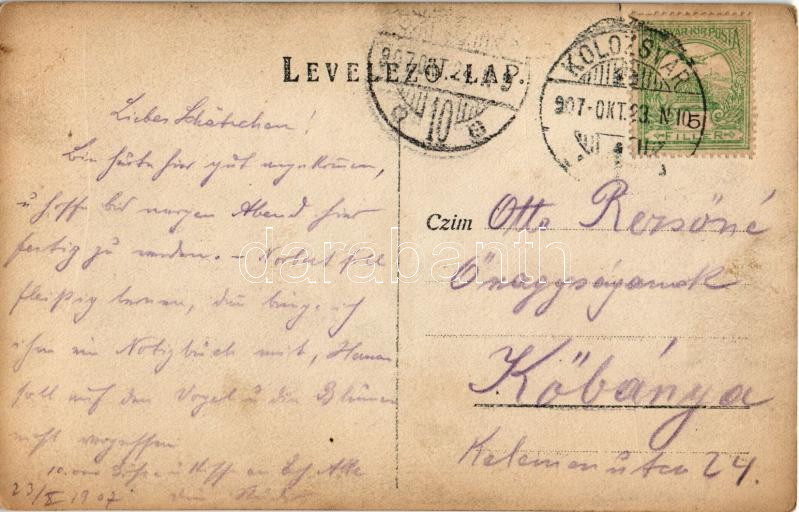 LEVELEZŐ-LAP.
KOLOZSVÁR
907-OKT.23.N10
10
MAGYAR KIR. POSTA
5
FILLÉR
Liebes Schätzchen!
Bin heute hier gut angekommen,
u hoffe bis morgen Abend hier
fertig zu werden. – Norbert soll
fleißig lernen, dann bringe ich
ihm ein Notizbuch mit,
soll auf den Vogel u die Blumen
nicht vergessen
10.000 Küsse
23/X 1907
Czim
Otto Rezsőné
Őnagyságának
Kőbánya
Kelemen utca 24.
darabanth